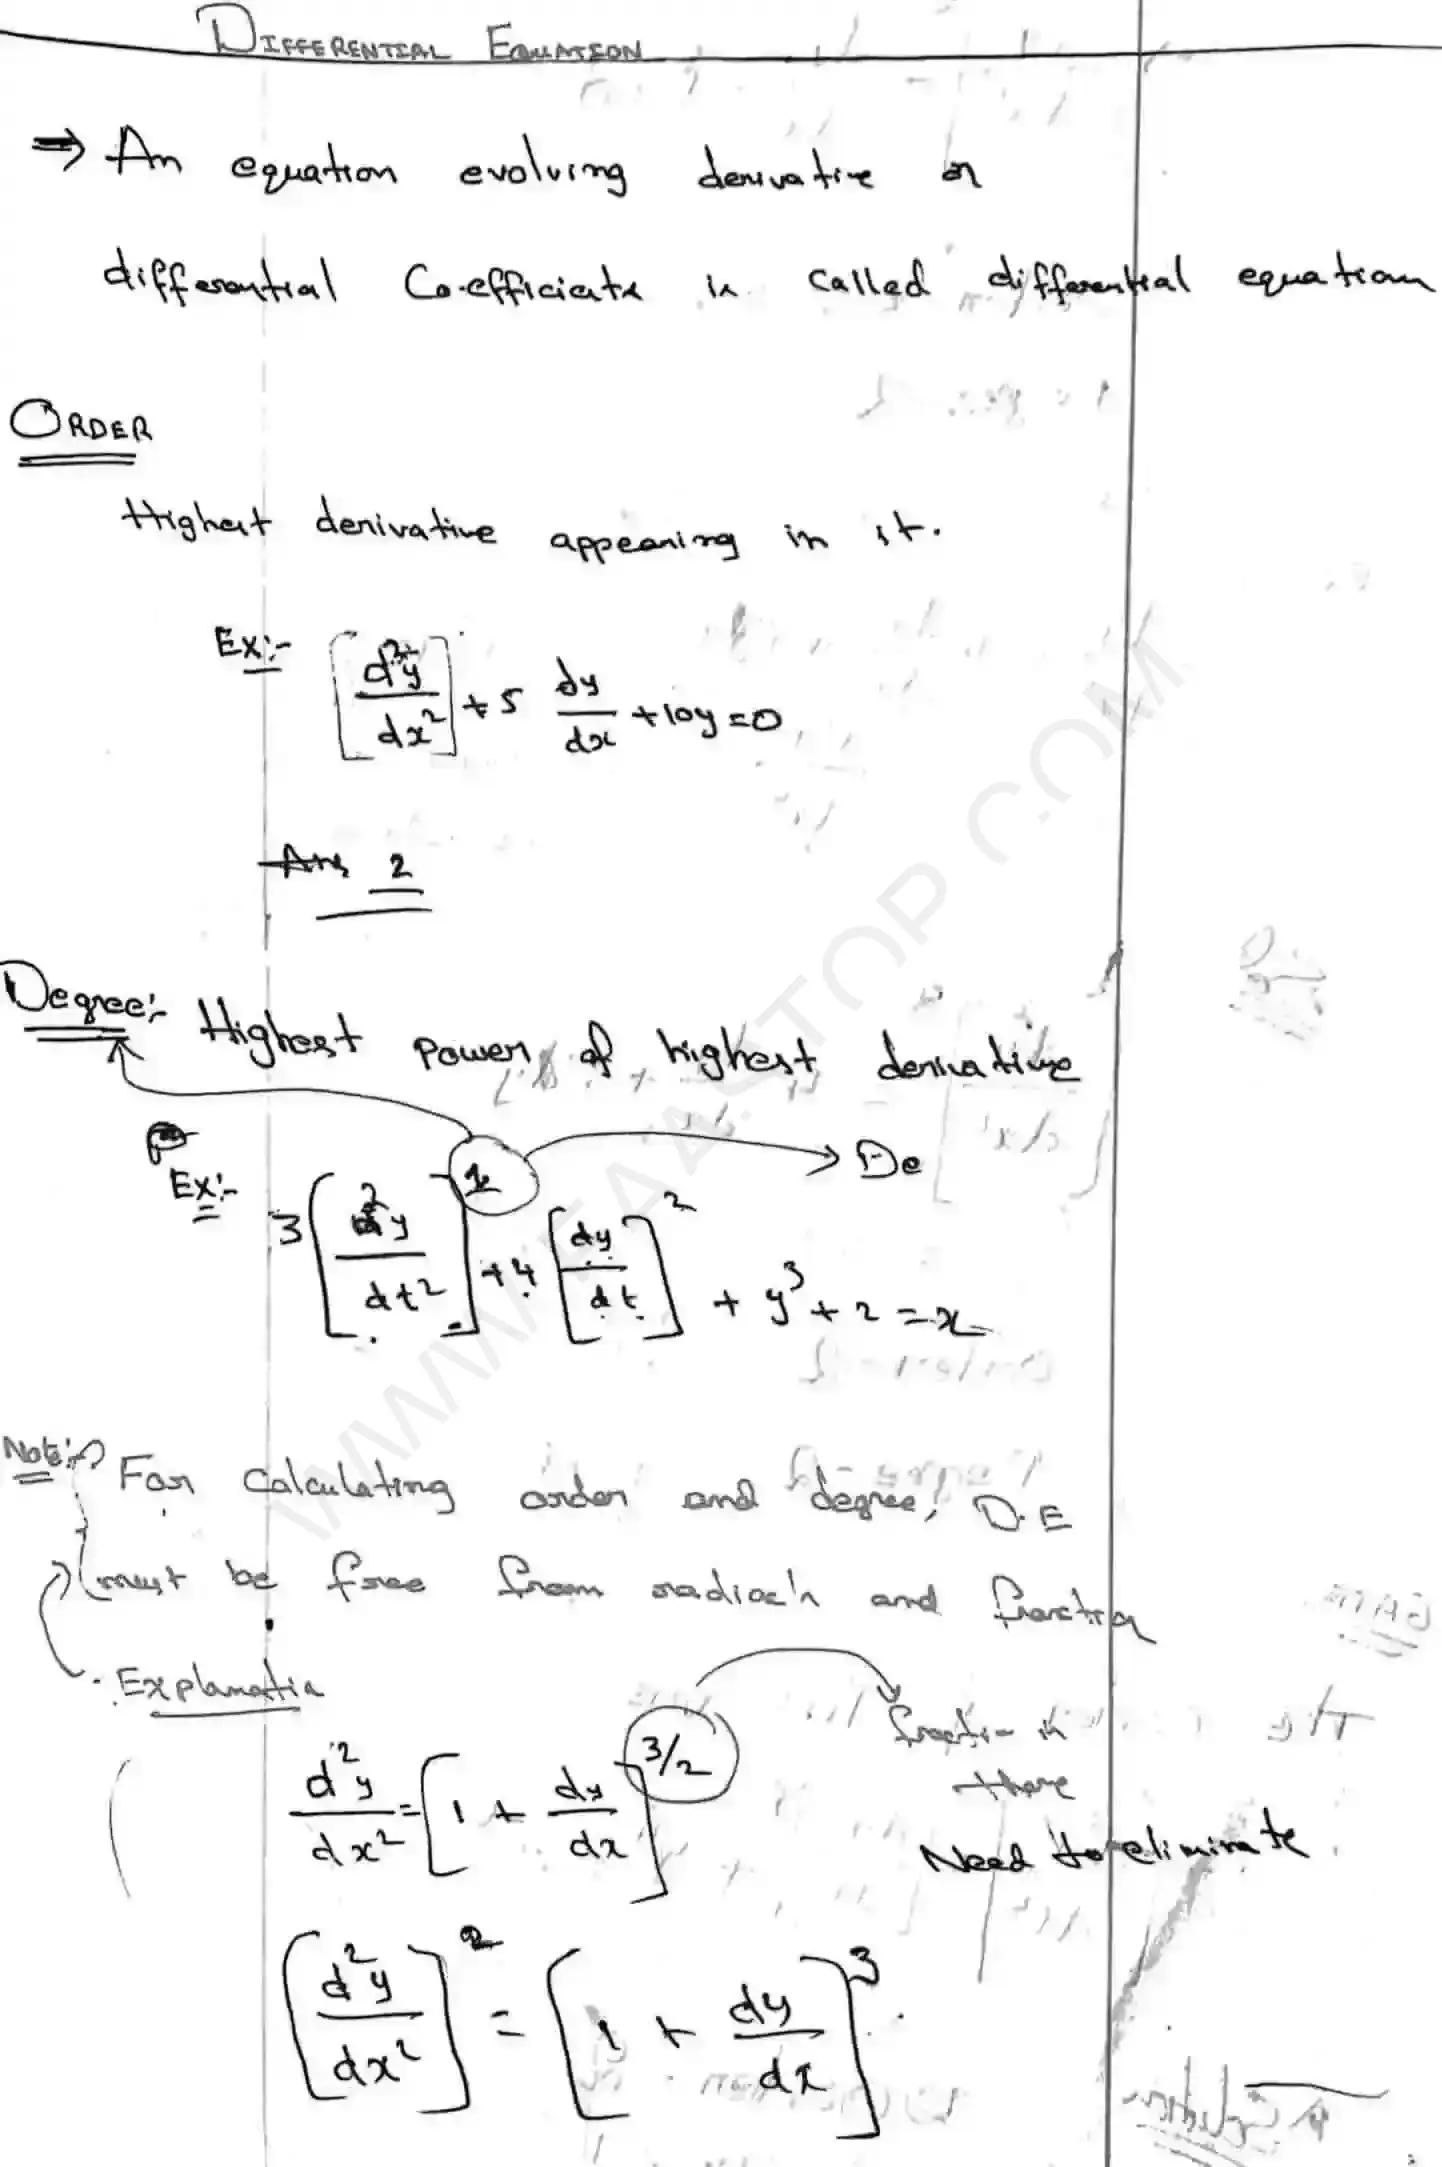 DIFFERENTIAL EQUATION
⇒ An equation evolving derivative or
differential Co-efficients is called differential equation
ORDER
Highest derivative appearing in it.
Ex:- [d²y/dx²] + 5 dy/dx + 10y = 0
Ans 2
Degree:- Highest power of highest derivative
De
Ex:- 3[d²y/dt²]¹ + 4[dy/dt]² + y³ + 2 = x
Note:- For calculating order and degree, D.E
must be free from radicals and fraction
Explanation
d²y/dx² = [1 + dy/dx]^3/2
fraction is
there
Need to eliminate
[d²y/dx²]² = [1 + dy/dx]³